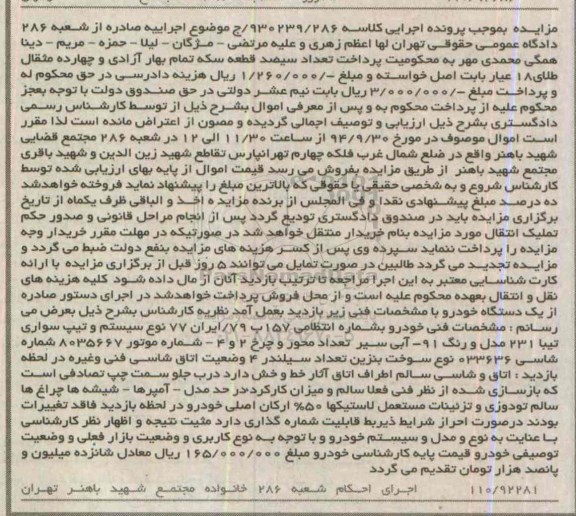 مزایـده بموجب پرونده اجرایی کلاسـه ۹۳۰۲۳۹/۲۸۶/ج موضوع اجراییه صادره از شـعبه ۲۸۶
دادگاه عمومـی حقوقـی تهران لها اعظم زهری و علیه مرتضی - مـژگان - لیلا - حمزه - مریم - دینا
همگی محمدی مهر به محکومیت پرداخت تعداد سیصد قطعه سکه تمام بهار آزادی و چهارده مثقال
طلای۱۸ عیار بابت اصل خواسـته و مبلغ -/۱/۲۶۰/۰۰۰ ریال هزینه دادرسـی در حق محکوم له
و پرداخـت مبلغ -/۳/۰۰۰/۰۰۰ ریال بابت نیم عشـر دولتی در حق صنـدوق دولت با توجه بعجز
محکوم علیه از پرداخت محکوم به و پس از معرفی اموال بشـرح ذیل از توسـط کارشناس رسـمی
دادگستری بشرح ذیل ارزیابی و توصیف اجمالی گردیده و مصون از اعتراض مانده است لذا مقرر
اسـت اموال موصوف در مورخ ۹۴/۹/۳۰ از سـاعت ۱۱/۳۰ الی ۱۲ در شـعبه ۲۸۶ مجتمع قضایی
شهید باهنر واقع در ضلع شمال غرب فلکه چهارم تهرانپارس تقاطع شهید زین الدین و شهید باقری
مجتمع شـهید باهنر از طریق مزایده بفروش می رسد قیمت اموال از پایه بهای ارزیابی شده توسط
کارشناس شروع و به شخصی حقیقی یا حقوقی که بالاترین مبلغ را پیشنهاد نماید فروخته خواهدشد
ده درصـد مبلغ پیشـنهادی نقدا و فی المجلس از برنده مزایـد ه اخـذ و الباقی ظرف یکماه از تاریخ
برگزاری مزایده باید در صندوق دادگستری تودیع گردد پس از انجام مراحل قانونی و صدور حکم
تملیک انتقال مورد مزایده بنام خریدار منتقل خواهد شد در صورتیکه در مهلت مقرر خریدار وجه
مزایده را پرداخت ننماید سـپرده وی پس از کسـر هزینه های مزایده بنفع دولت ضبط می گردد و
مزایـده تجدیـد می گردد طالبین در صورت تمایل می توانند ۵ روز قبل از برگزاری مزایده با ارائه
کارت شناسـایی معتبر به این اجرا مراجعه تا ترتیب بازدید آنان از مال داده شود کلیه هزینه های
نقل و انتقال بعهده محکوم علیه است و از محل فروش پرداخت خواهدشد در اجرای دستور صادره
از یک دستگاه خودرو با مشخصات فنی زیر بازدید بعمل آمد نظریه کارشناس بشرح ذیل بعرض می
رسـانم : مشخصات فنی خودرو بشماره انتظامی ۱۵۷ب ۷۹/ایران ۷۷ نوع سیستم و تیپ سواری
تیبا ۲۳۱ مدل و رنگ ۹۱- آبی سـیر تعداد محور و چرخ ۲ و ۴ - شـماره موتور ۸۰۳۵۶۶۷ شماره
شاسـی ۰۳۳۶۳۶ نوع سـوخت بنزین تعداد سـیلندر ۴ وضعیت اتاق شاسـی فنی وغیره در لحظه
بازدید : اتاق و شاسـی سـالم اطراف اتاق آثار خط و خش دارد درب جلو سـمت چپ تصادفی اسـت
که بازسـازی شـده از نظر فنی فعلا سالم و میزان کارکرددر حد مدل - آمپرها - شیشه ها چراغ ها
سالم تودوزی و تزئینات مستعمل لاستیکها ۵۰% ارکان اصلی خودرو در لحظه بازدید فاقد تغییرات
بودند درصورت احراز شرایط ذیربط قابلیت شماره گذاری دارد مثبت نتیجه و اظهار نظر کارشناسی
بـا عنایت به نوع و مدل و سیسـتم خودرو و با توجه بـه نوع کاربری و وضعیت بازار فعلی و وضعیت
توصیفی خودرو قیمت پایه کارشناسی خودرو مبلغ ۱۶۵/۰۰۰/۰۰۰ ریال معادل شانزده میلیون و
پانصد هزار تومان تقدیم می گردد
۱۱۰/۹۲۲۸۱ اجـرای احـکام شـعبه ۲۸۶ خانـواده مجتمـع شـهید باهنـر تهـران